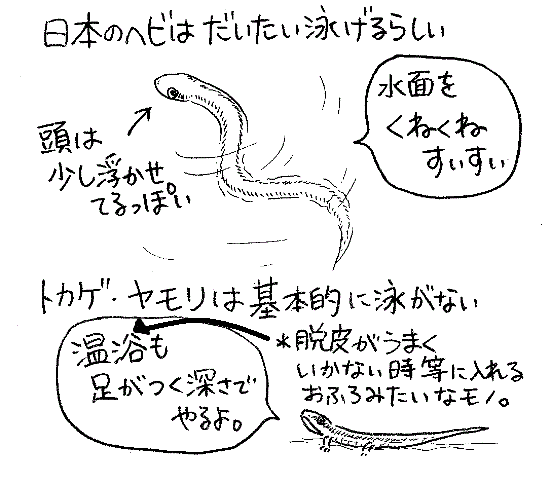 日本のヘビはだいたい泳げるらしい
水面を
くねくね
すいすい
頭は
少し浮かせ
てるっぽい
トカゲ・ヤモリは基本的に泳がない
温浴も
足がつく深さで
やるよ。
*脱皮がうまく
いかない時等に入れる
おふろみたいなモノ。